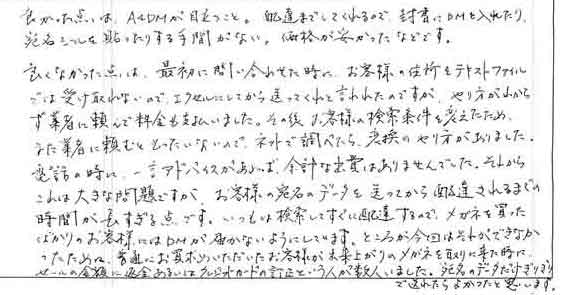 良かった点は、A4DMが目立つこと。配達までしてくれるので、封書にDMを入れたり、
宛名シールを貼ったりする手間がない。価格が安かったなどです。
良くなかった点は、最初に問い合わせた時に、お客様の住所をテキストファイル
では受け取れないので、エクセルにしてから送ってくれと言われたのですが、やり方がわから
ず業者に頼んで料金も支払いました。その後、お客様の検索条件を変えたため、
また業者に頼むともったいないので、ネットで調べたら、変換のやり方がありました。
電話の時に、一言アドバイスがあれば、余計な出費はありませんでした。それから
これは大きな問題ですが、お客様の宛名のデータを送ってから配達されるまでの
時間が長すぎる点です。いつもは検索してすぐに配達するので、メガネを買った
ばかりのお客様にはDMが届かないようにしています。ところが今回はそれができなか
ったために、普通にお買求めいただいたお客様が出来上がりのメガネを取りに来た時に、
セールの金額に返金あるいはクレジットカードの訂正という人が数人いました。宛名のデータだけぎりぎり
で送れたらよかったと思います。